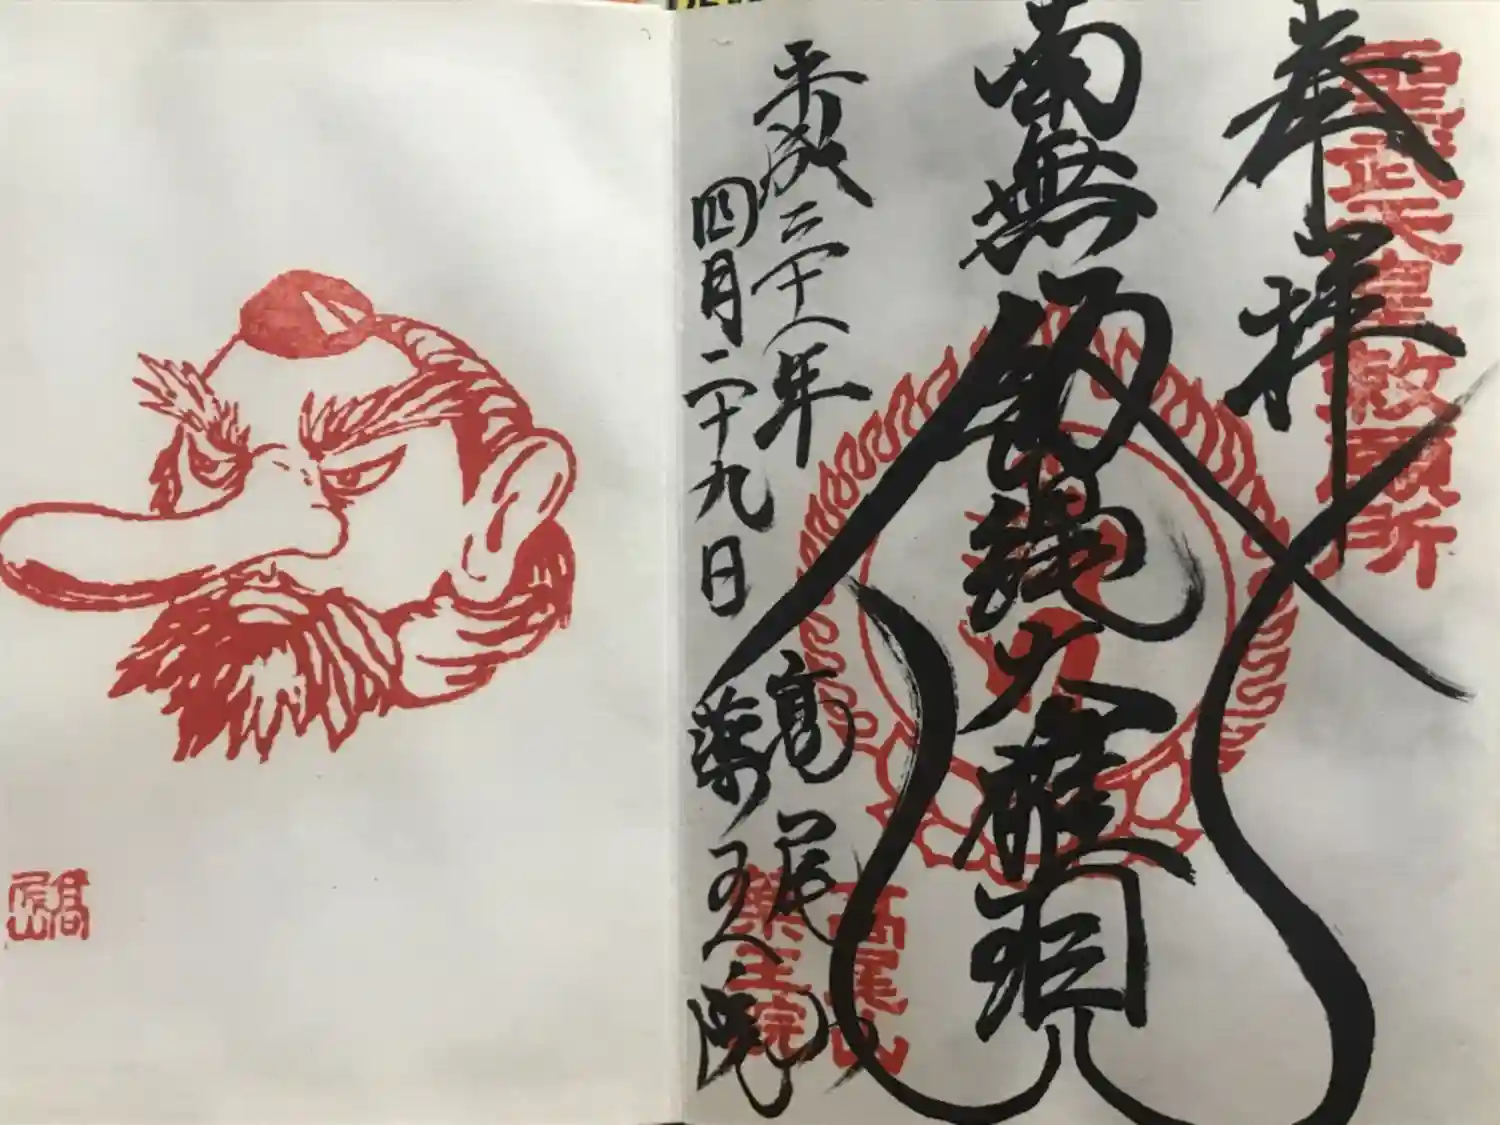 聖武天皇敕願所
奉拝
南無飯縄大権現
平成二十八年
四月二十九日
高尾山
薬王院
高尾山
薬王院
高尾山